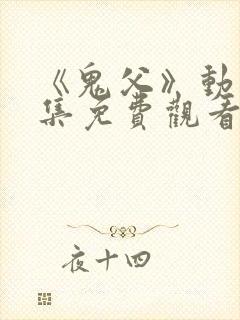 《鬼父》動
集免費觀看
夜十四